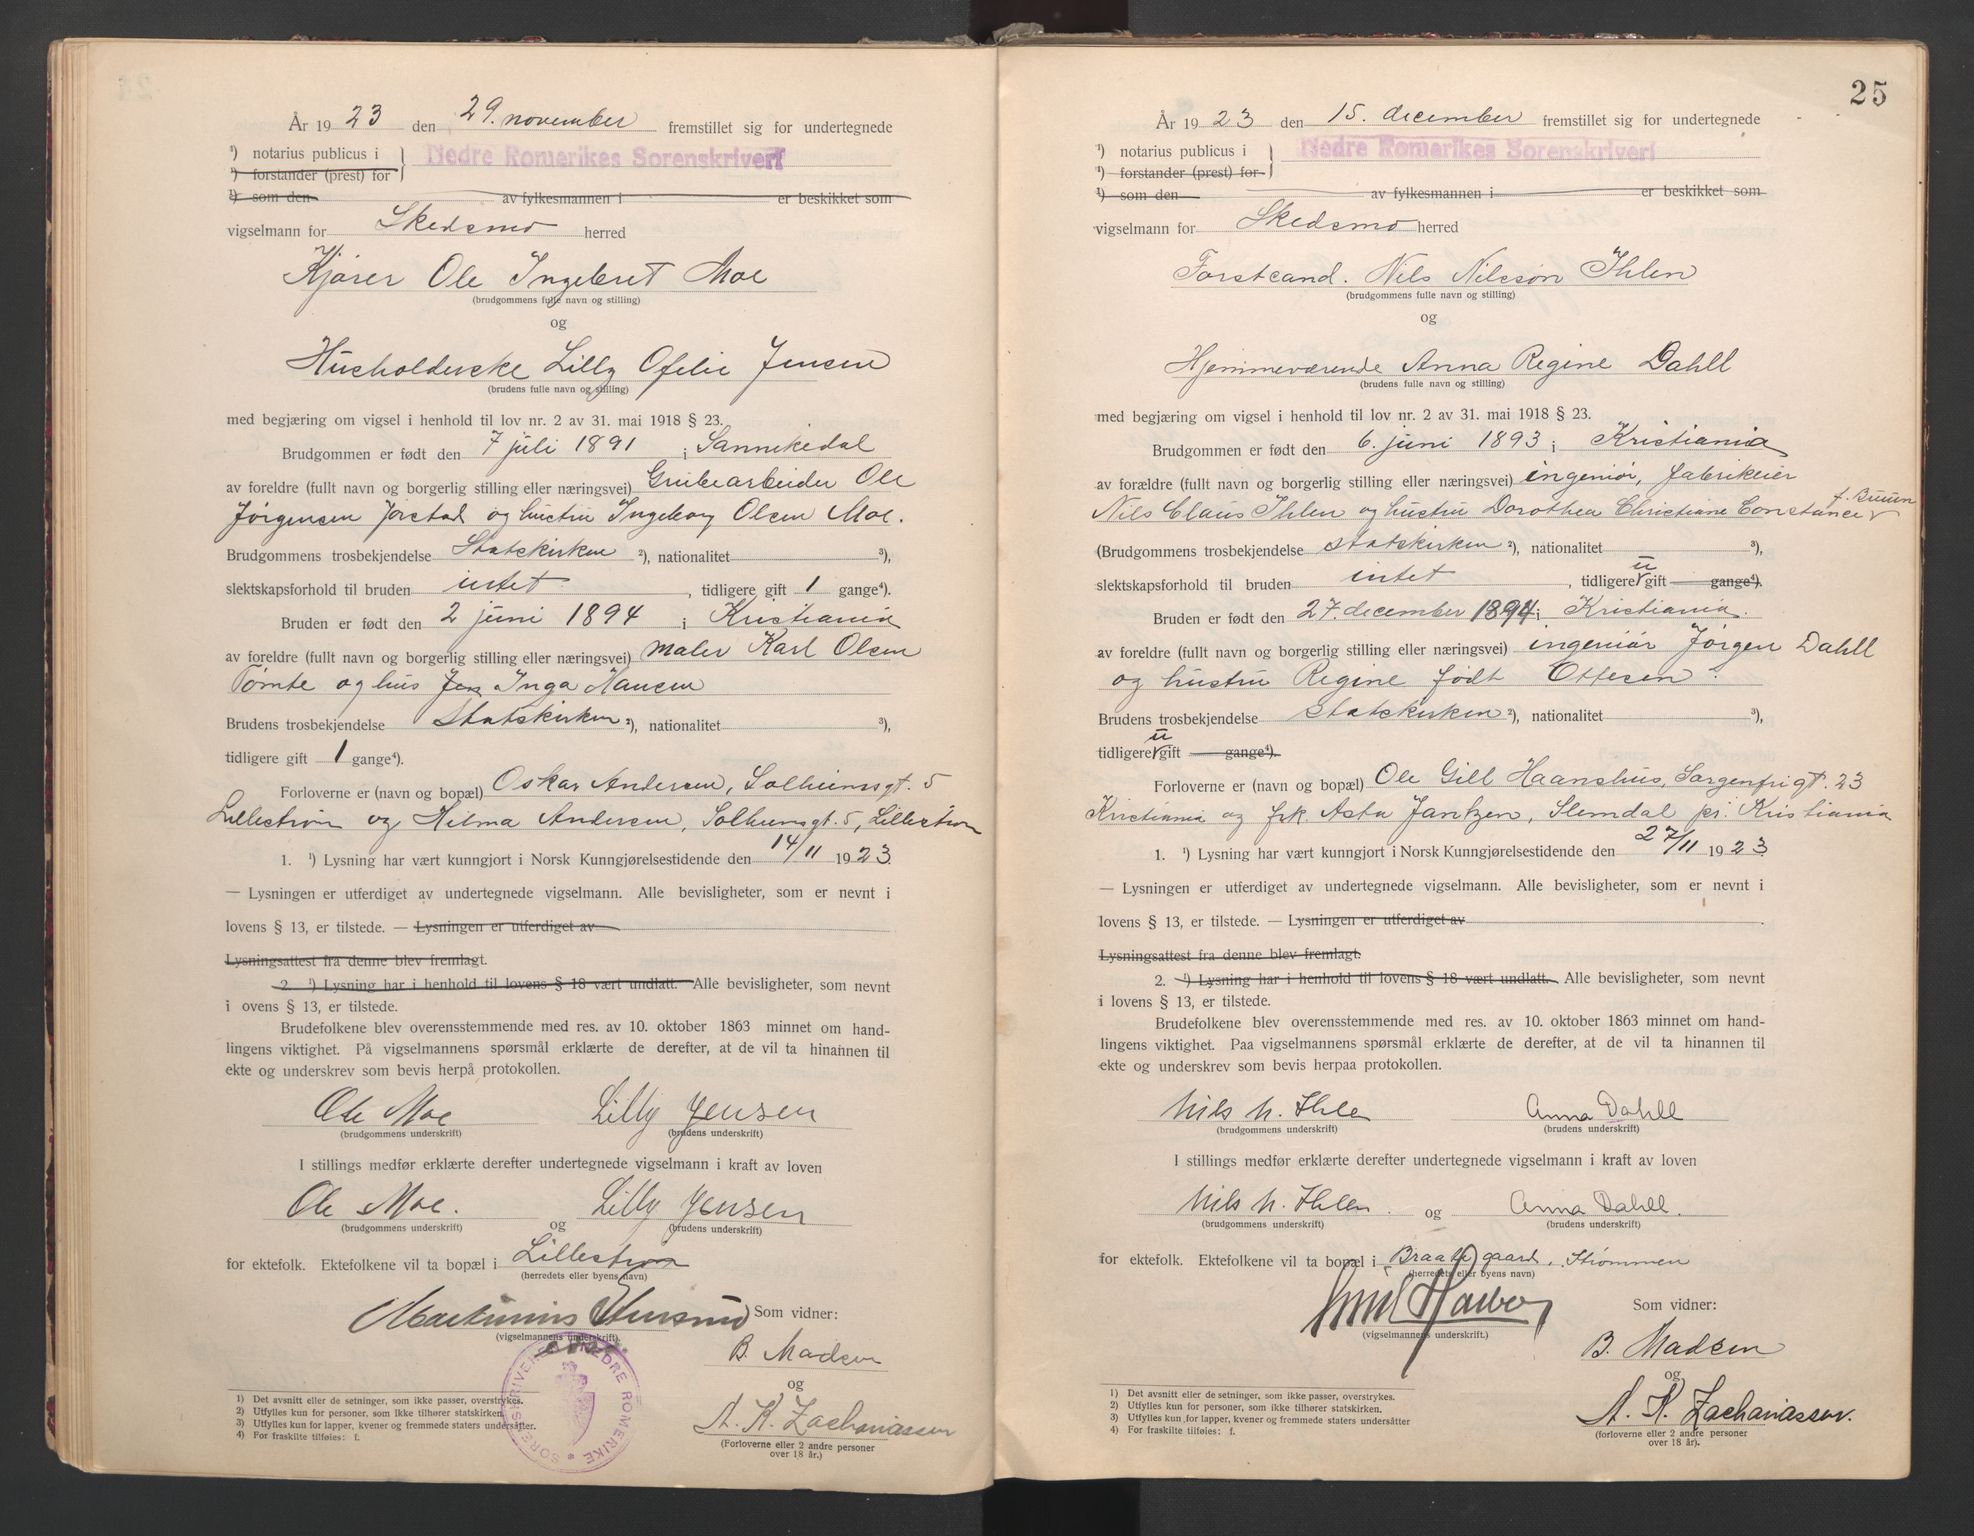 År 1923 den 29. november fremstillet sig for undertegnede
¹) notarius publicus i } Nedre Romerikes Sorenskriveri
¹) forstander (prest) for
¹) som den av fylkesmannen i er beskikket som
vigselmann for Skedsmo herred
Kjører Ole Ingebret Moe
(brudgommens fulle navn og stilling)
og
Husholderske Lilly Ofelie Jensen
(brudens fulle navn og stilling)
med begjæring om vigsel i henhold til lov nr. 2 av 31. mai 1918 § 23.
Brudgommen er født den 7 juli 1891 i Sannikedal
av foreldre (fullt navn og borgerlig stilling eller næringsvei) Grubearbeider Ole
Jørgensen Jorstad og hustru Ingeborg Olsen Moe.
Brudgommens trosbekjendelse Statskirken ²), nationalitet ³),
slektskapsforhold til bruden intet, tidligere gift 1 gange⁴).
Bruden er født den 2 juni 1894 i Kristiania
av foreldre (fullt navn og borgerlig stilling eller næringsvei) maler Karl Olsen
Tømte og hus Inga Hansen
Brudens trosbekjendelse Statskirken ²), nationalitet ³),
tidligere gift 1 gange⁴).
Forloverne er (navn og bopæl) Oskar Andersen, Solheimsgt. 5
Lillestrøm og Hilma Andersen, Solheimsgt. 5, Lillestrøm
1. ¹) Lysning har vært kunngjort i Norsk Kunngjørelsestidende den 14/11 1923
— Lysningen er utferdiget av undertegnede vigselmann. Alle bevisligheter, som er nevnt i
lovens § 13, er tilstede. — Lysningen er utferdiget av
Lysningsattest fra denne blev fremlagt.
2. ¹) Lysning har i henhold til lovens § 18 vært undlatt. Alle bevisligheter, som nevnt
i ovens § 13, er tilstede.
Brudefolkene blev overensstemmende med res. av 10. oktober 1863 minnet om hand-
lingens viktighet. På vigselmannens spørsmål erklærte de derefter, at de vil ta hinannen til
ekte og underskrev som bevis herpå protokollen.
Ole Moe Lilly Jensen
(brudgommens underskrift) (brudens underskrift)
I stillings medfør erklærte derefter undertegnede vigselmann i kraft av loven
Ole Moe. og Lilly Jensen
(brudgommens underskrift) (brudens underskrift)
for ektefolk. Ektefolkene vil ta bopæl i Lillestrøm
(herredets eller byens navn)
Som vidner:
(vigselmannens underskrift).
B. Madsen
og
A. K. Zachariassen
(Forloverne eller 2 andre personer
over 18 år.)
SORENSKRIVEREN I NEDRE ROMERIKE
1) Det avsnitt eller de setninger, som ikke passer, overstrykes.
2) Utfylles kun for personer, som ikke tilhører statskirken.
3) Utfylles kun for lapper, kvener og fremmede staters undersåtter.
4) For fraskilte tilføies: f.
25
År 1923 den 15. december fremstillet sig for undertegnede
¹) notarius publicus i } Nedre Romerikes Sorenskriveri
¹) forstander (prest) for
¹) som den av fylkesmannen i er beskikket som
vigselmann for Skedsmo herred
Forstcand. Nils Nilssøn Ihlen
(brudgommens fulle navn og stilling)
og
Hjemmeværende Anna Regine Dahll
(brudens fulle navn og stilling)
med begjæring om vigsel i henhold til lov nr. 2 av 31. mai 1918 § 23.
Brudgommen er født den 6. juni 1893 i Kristiania
av forældre (fullt navn og borgerlig stilling eller næringsvei) ingeniør, fabrikeier
Nils Claus Ihlen og hustru Dorothea Christiane Constance f. Buuen
(Brudgommens trosbekjendelse statskirken ²), nationalitet ³),
slektskapsforhold til bruden intet, tidligere u gift gange⁴).
Bruden er født den 27. december 1894 i Kristiania.
av foreldre (fullt navn og borgerlig stilling eller næringsvei) ingeniør Jørgen Dahll
og hustru Regine født Ottesen.
Brudens trosbekjendelse statskirken ²), nationalitet ³),
tidligere u gift gange⁴).
Forloverne er (navn og bopæl) Ole Gill Haanshus, Sorgenfrigt. 23
Kristiania og frk. Asta Jantzen, Slemdal pr. Kristiania
1. ¹) Lysning har vært kunngjort i Norsk Kunngjørelsestidende den 27/11 1923
— Lysningen er utferdiget av undertegnede vigselmann. Alle bevisligheter, som er nevnt i
lovens § 13, er tilstede. — Lysningen er utferdiget av
Lysningsattest fra denne blev fremlagt.
2. ¹) Lysning har i henhold til lovens § 18 vært undlatt. Alle bevisligheter, som nevnt
i lovens § 13, er tilstede.
Brudefolkene blev overensstemmende med res. av 10. oktober 1863 minnet om hand-
lingens viktighet. Paa vigselmannens spørsmål erklærte de derefter, at de vil ta hinannen til
ekte og underskrev som bevis herpaa protokollen.
Nils N. Ihlen Anna Dahll
(brudgommens underskrift) (brudens underskrift)
I stillings medfør erklærte derefter undertegnede vigselmann i kraft av loven
Nils N. Ihlen. og Anna Dahll.
(brudgommens underskrift) (brudens underskrift)
for ektefolk. Ektefolkene vil ta bopæl i Braategaard, Strømmen
(herredets eller byens navn)
Som vidner:
(vigselmannens underskrift.)
B. Madsen
og
A. K. Zachariassen.
(forloverne eller 2 andre personer
over 18 år).
1) Det avsnitt eller de setninger, som ikke passer, overstrykes.
2) Utfylles kun for personer, som ikke tilhører statskirken.
3) Utfylles kun for lapper, kvener og fremmede staters undersåtter
4) For fraskilte tilføies: f.